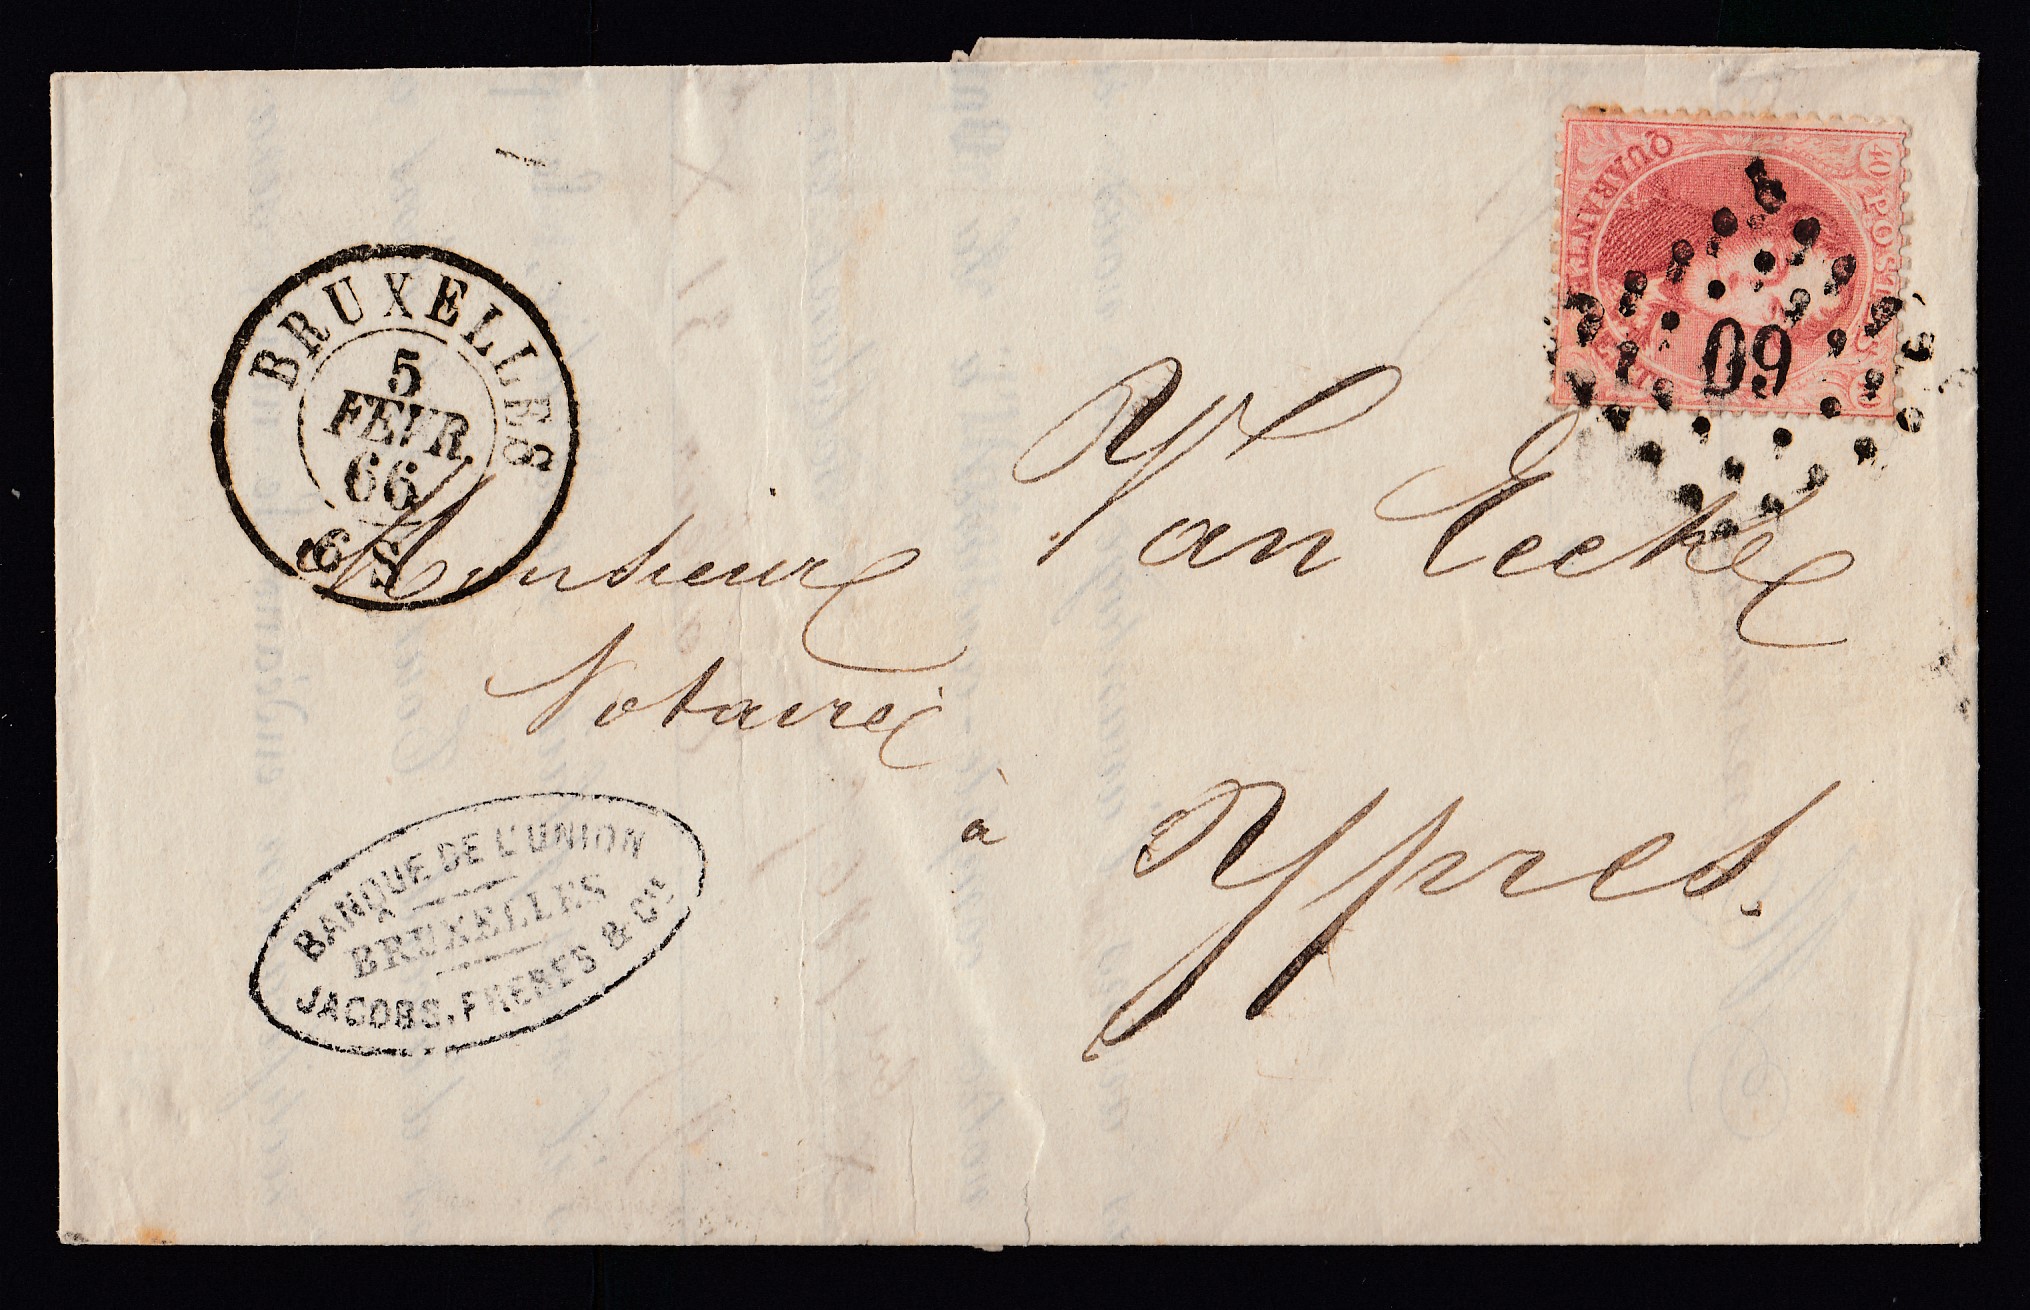 BRUXELLES
5
FEVR.
66
6 S
40 POSTES 40
QUARANTE
60
Monsieur Van Eecke
Notaire
à Ypres.
BANQUE DE L'UNION
A
BRUXELLES
JACOBS, FRERES & CIE